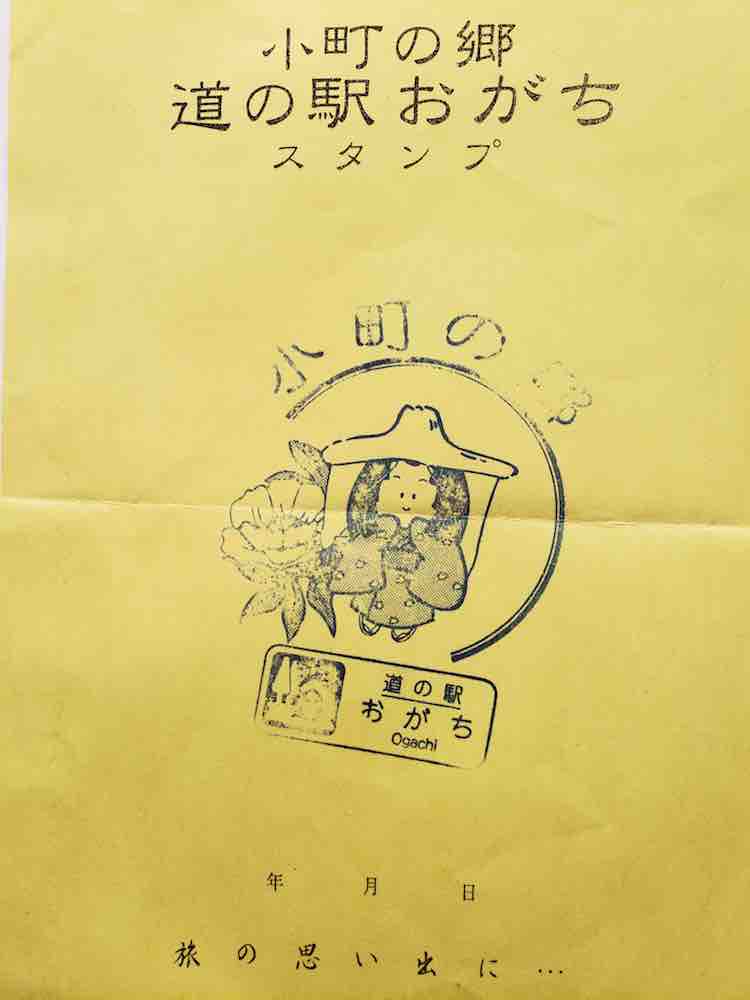 小町の郷
道の駅おがち
スタンプ
小町の郷
道の駅
おがち
Ogachi
年 月 日
旅の思い出に…